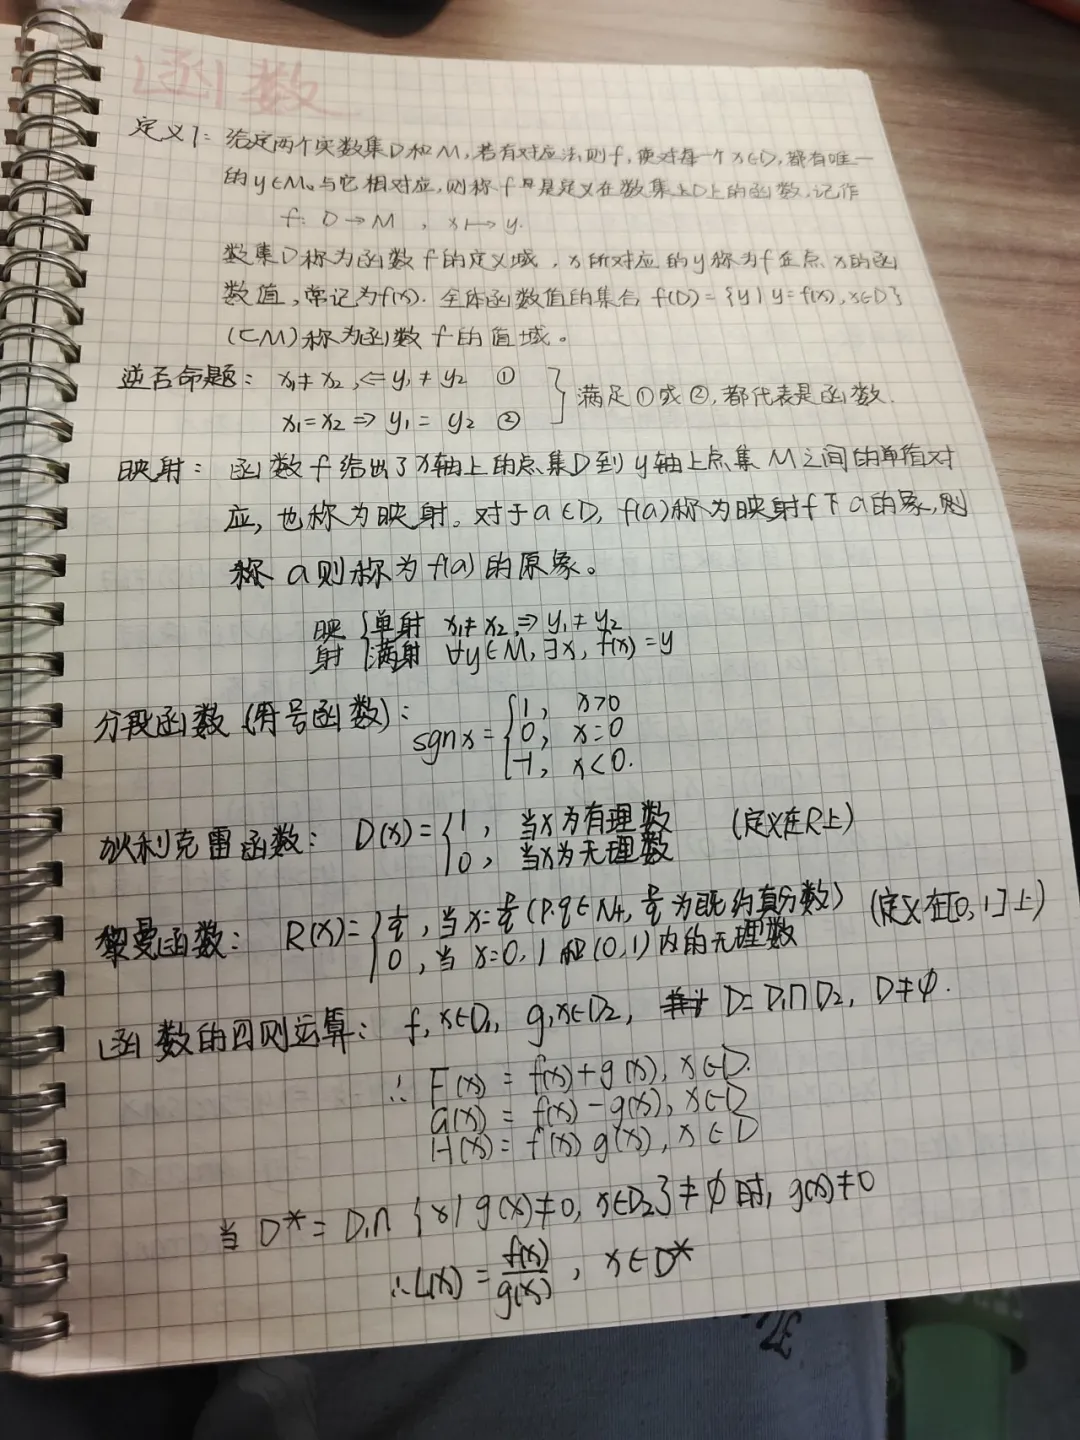 函数
定义1: 给定两个实数集D和M,若有对应法则f,使对每一个x∈D,都有唯一
的y∈M。与它相对应,则称f是定义在数集上D上的函数,记作
f: D→M , x↦y.
数集D称为函数f的定义域,x所对应的y称为f在点x的函
数值,常记为f(x). 全体函数值的集合 f(D)={y|y=f(x),x∈D}
(⊂M)称为函数f的值域。
逆否命题: x₁≠x₂ ⇐ y₁≠y₂ ①
x₁=x₂ ⇒ y₁=y₂ ②
} 满足①或②,都代表是函数.
映射: 函数f给出了x轴上的点集D到y轴上点集M之间的单值对
应,也称为映射。对于a∈D, f(a)称为映射f下a的象,则
称a则称为f(a)的原象。
映射 { 单射 x₁≠x₂ ⇒ y₁≠y₂
满射 ∀y∈M,∃x, f(x)=y
分段函数(符号函数): sgnx = { 1, x>0
0, x=0
-1, x<0.
狄利克雷函数: D(x)= { 1, 当x为有理数 (定义在R上)
0, 当x为无理数
黎曼函数: R(x)= { 1/q, 当x=p/q (p.q∈N₊, p/q为既约真分数) (定义在[0,1]上)
0, 当x=0,1和(0,1)内的无理数
函数的四则运算: f,x∈D₁, g,x∈D₂, D=D₁∩D₂, D≠∅.
∴ F(x) = f(x)+g(x), x∈D.
G(x) = f(x)-g(x), x∈D
H(x) = f(x) g(x), x∈D
当 D* = D₁∩{x|g(x)≠0, x∈D₂}≠∅时, g(x)≠0
∴L(x) = f(x)/g(x), x∈D*